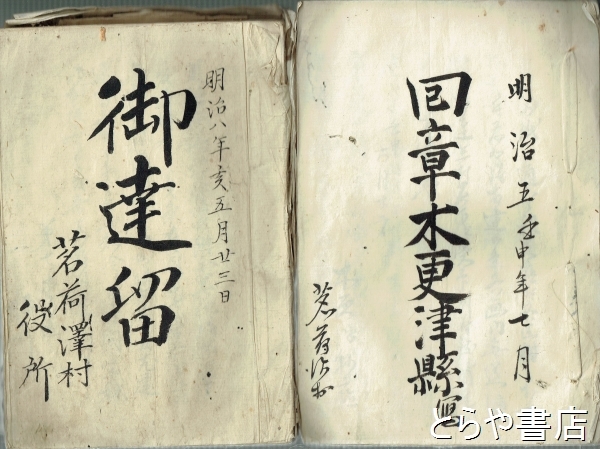 明治五壬申年七月
回章木更津縣寫
茗荷沢村
明治八年亥五月廿三日
御達留
茗荷澤村
役所
とらや書店